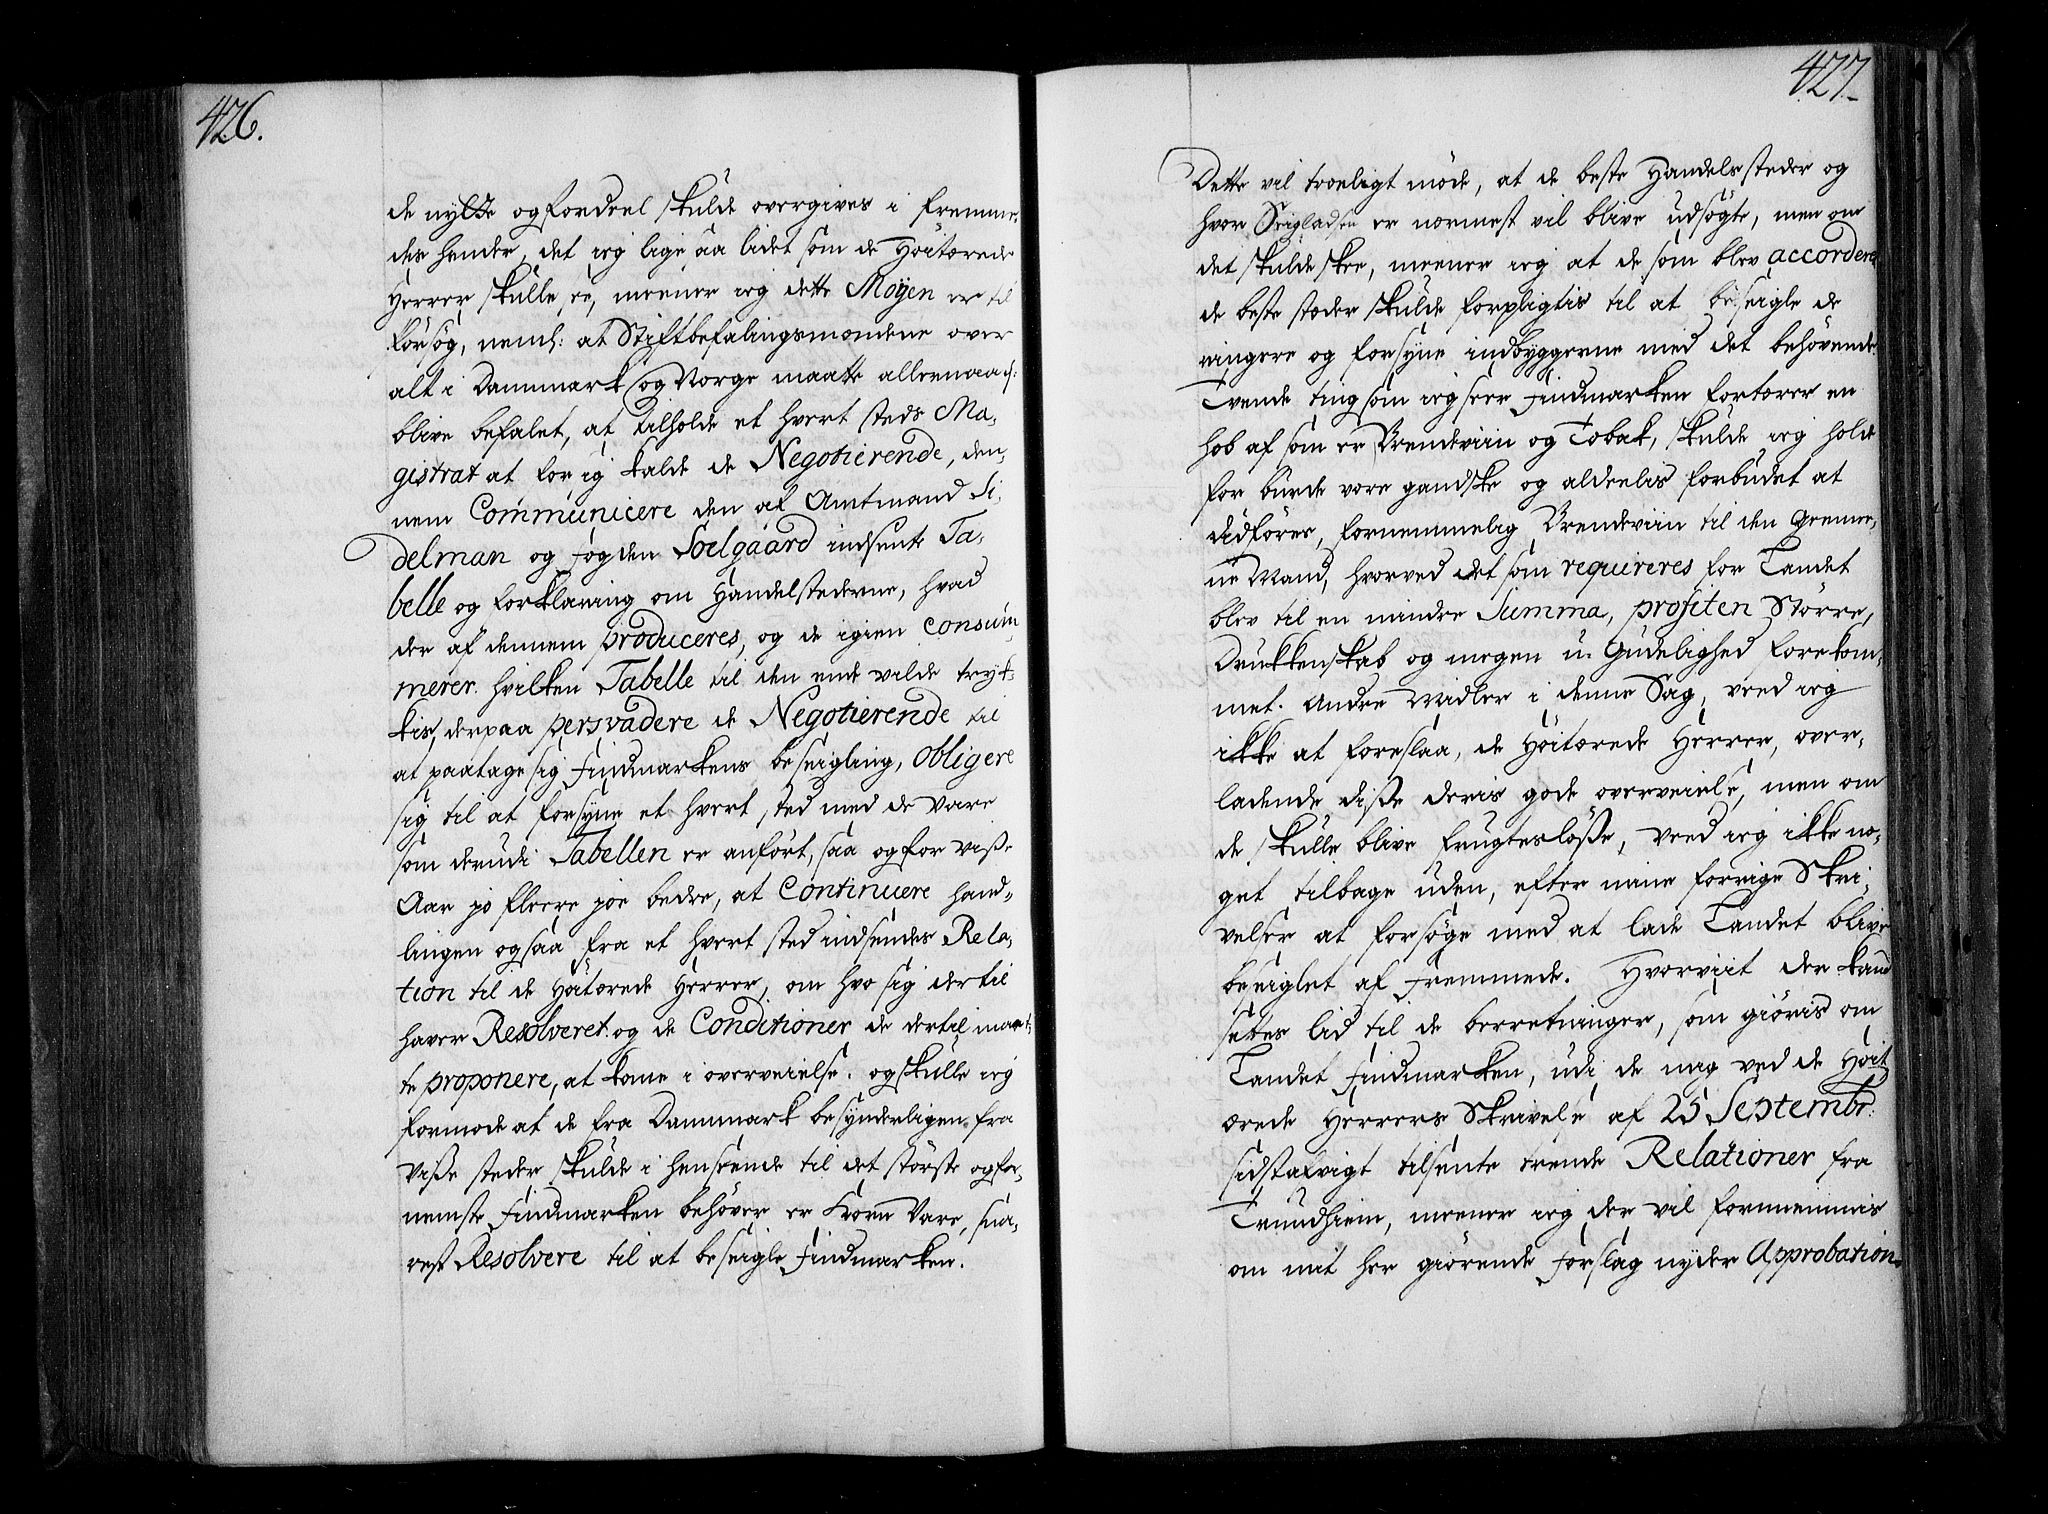 426.
de nytte og fordeel skulde overgives i fremme,
des hender, det ieg lige saa lidet som de Høitærede
Herrer skulle see, meener ieg dette Moÿen er til
forsøg, neml: at Stiftbefalingsmændene over
alt i Dannmark og Norge maatte allernaad:
blive befalet, at tilholde et hvert steds Ma,
gistrat at for sig kalde de Negotierende, den,
nem Communicere den af Amtmand Si,
delman og fogden Soelgaard indsente Ta,
belle og forklaring om Handelstederne, hvad
der af dennem produceres, og de igien Consum
merer. hvilken Tabelle til den ende vilde tryk,
kis, derpaa persvadere de Negotierende til
at paatage sig Findmarkens beseigling, Obligere
sig til at forsyne et hvert sted med de Vare
som derudi Tabellen er anført, saa og for visse
Aar jo fleere joe bedre, at Continuere hand,
lingen ogsaa fra et hvert sted indsendes Rela,
tion til de Høitærede Herrer, om hvo sig dertil
haver Resolveret og de Conditioner de dertil maat,
te proponere, at kome i overveielse. og skulle ieg
formode at de fra Dannmark besynderligen fra
visse steder skulde i henseende til det største og for,
nemste Findmarken behøver er Korn Vare, sna,
rest Resolvere til at beseigle Findmarken.
427.
Dette vil troeligt møde, at de beste Handelsteder og
hvor Seigladsen er nærmest vil blive udsøgte, men om
det skulde skee, meener ieg at de som blev accordered
de beste steder skulde forpligtis til at beseigle de
ringere og forsyne indbyggerne med det behøvende.
Tvende ting som ieg seer Findmarken fortærer en
hob af som er Brendeviin og Tobak, skulde ieg holde
for burde være gandske og aldeelis forbudet at
didføres, fornemmelig Brendeviin til den Gemee,
ne Mand, hvorved det som requireres for Landet
blev til en mindre Summa, profiten Større,
Drukkenskab og megen u-Gudelighed forekom,
met. Andre Midler i denne Sag, veed ieg
ikke at foreslaa, de Høitærede Herrer, over,
ladende disse deris gode overveielse, men om
de skulle blive frugtesløsse, veed ieg ikke no,
get tilbage uden, efter mine forrige Skri,
velser at forsøge med at lade Landet blive
beseiglet af Fremmede. Hvorviit der kand
settes lid til de berretninger, som giøris om
Landet Findmarken, udi de mig ved de Høit
ærede Herrers Skrivelse af 25 Septembr:
sidstafvigt tilsente trende Relationer fra
Trundhiem, meener ieg der vil fornemmis
om mit her giørende forslag nyder Approbation.